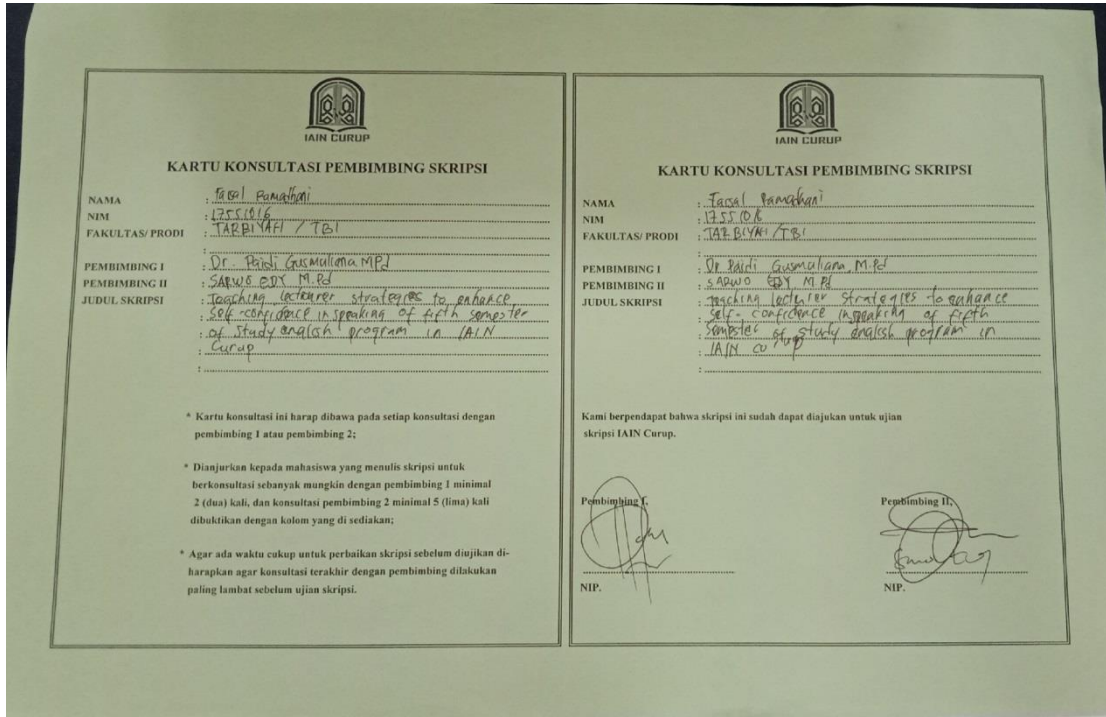 IAIN CURUP
KARTU KONSULTASI PEMBIMBING SKRIPSI
NAMA : Faisal Ramadhani
NIM : 17551016
FAKULTAS/ PRODI : TARBIYAH / TBI
:
PEMBIMBING I : Dr. Paidi Gusmuliana MPd
PEMBIMBING II : SARWO EDY M.Pd
JUDUL SKRIPSI : Teaching lecturer strategies to enhance
: Self-confidence in speaking of fifth semester
: of study english program in IAIN
: Curup
:
* Kartu konsultasi ini harap dibawa pada setiap konsultasi dengan
pembimbing 1 atau pembimbing 2;
* Dianjurkan kepada mahasiswa yang menulis skripsi untuk
berkonsultasi sebanyak mungkin dengan pembimbing 1 minimal
2 (dua) kali, dan konsultasi pembimbing 2 minimal 5 (lima) kali
dibuktikan dengan kolom yang di sediakan;
* Agar ada waktu cukup untuk perbaikan skripsi sebelum diujikan di-
harapkan agar konsultasi terakhir dengan pembimbing dilakukan
paling lambat sebelum ujian skripsi.
IAIN CURUP
KARTU KONSULTASI PEMBIMBING SKRIPSI
NAMA : Faisal Ramadhani
NIM : 17551016
FAKULTAS/ PRODI : TARBIYAH /TBI
:
PEMBIMBING I : Dr Paidi Gusmuliana, M.Pd
PEMBIMBING II : SARWO EDY M.Pd
JUDUL SKRIPSI : Teaching lecturer Strategies to enhance
: Self-confidence in speaking of fifth
: Semester of study english program in
: IAIN curup
:
Kami berpendapat bahwa skripsi ini sudah dapat diajukan untuk ujian
skripsi IAIN Curup.
Pembimbing I, Pembimbing II,
NIP. NIP.